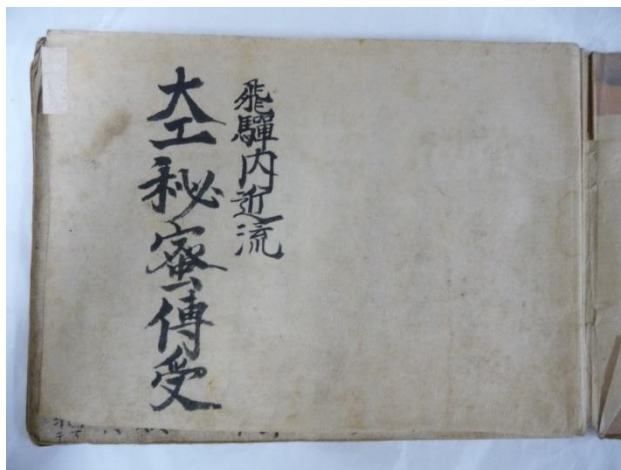 飛驒内近流
大工秘蜜傳受